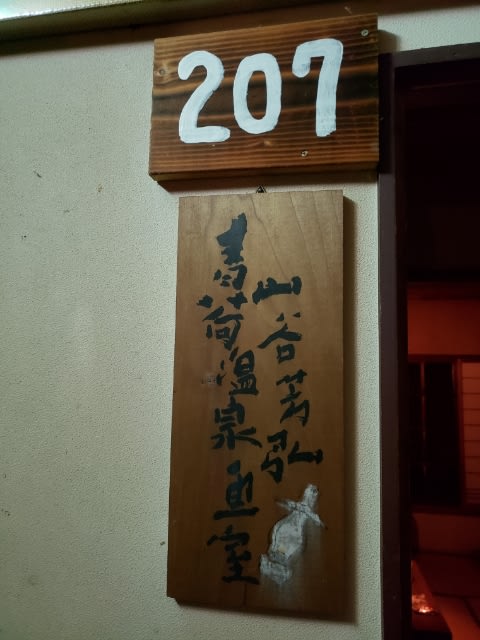 207
山谷芳弘
青荷温泉
室